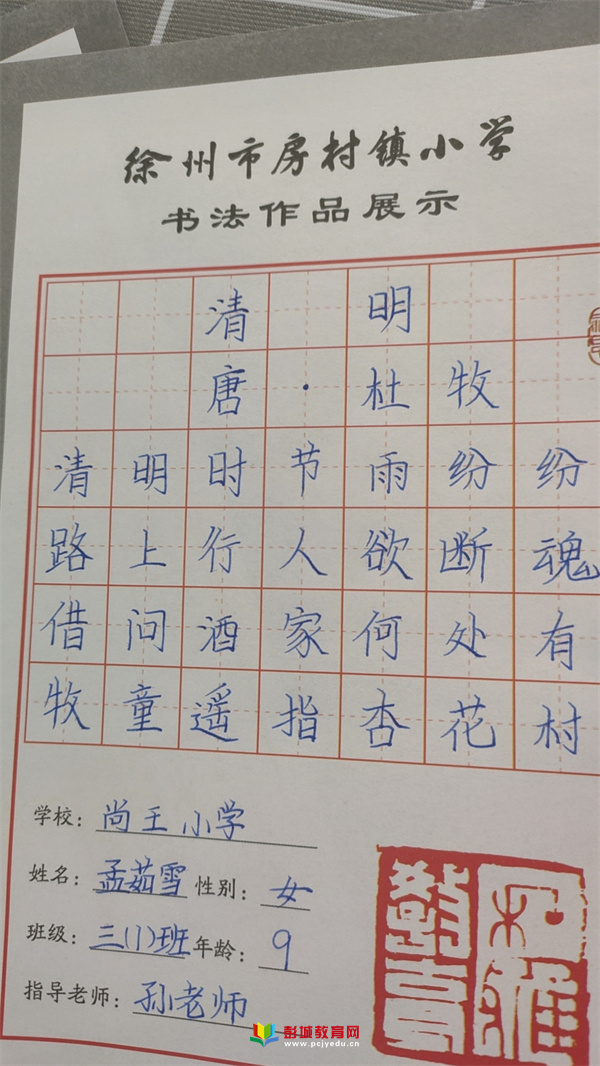 徐州市房村镇小学
书法作品展示
清明
唐·杜牧
清明时节雨纷纷
路上行人欲断魂
借问酒家何处有
牧童遥指杏花村
学校：尚王小学
姓名：孟茹雪 性别：女
班级：三(1)班 年龄：9
指导老师：孙老师
彭城教育网
www.pcjyedu.cn